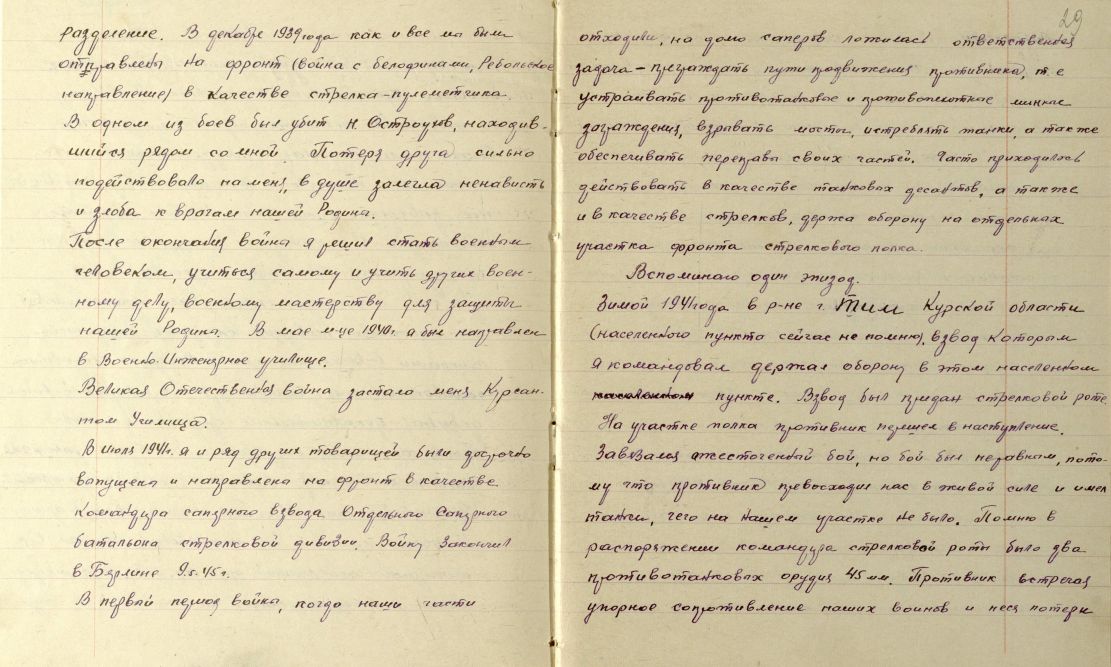 разделение. В декабре 1939 года как и все мы были
отправлены на фронт (война с белофинами, Ребольское
направление) в качестве стрелка-пулеметчика.
В одном из боев был убит Н. Остроухов, находив-
шийся рядом со мной. Потеря друга сильно
подействовало на меня, в душе залегла ненависть
и злоба к врагам нашей Родины.
После окончания война я решил стать военным
человеком, учиться самому и учить других воен-
ному делу, военному мастерству для защиты
нашей Родины. В мае м-це 1940г. я был направлен
в Военно-Инженерное училище.
Великая Отечественная война застало меня Курсан-
том Училища.
В июля 1941г. я и ряд других товарищей были досрочно
выпущены и направлены на фронт в качестве
командира саперного взвода Отдельного Саперного
батальона, стрелковой дивизии. Войну закончил
в Берлине 9.5.45г.
В первый период войны, когда наши части
29
отходили, на долю саперов ложилась ответственная
задача – преграждать пути продвижения противника, т.е
устраивать противотанковое и противопехотные минные
заграждения, взрывать мосты, истреблять танки, а также
обеспечивать переправы своих частей. Часто приходилось
действовать в качестве танковых десантов, а также
и в качестве стрелков, держа оборону на отдельных
участка фронта стрелкового полка.
Вспоминаю один эпизод.
Зимой 1941 года в р-не г. Тим Курской области
(населенного пункта сейчас не помню), взвод которым
я командовал держал оборону в этом населенном
населенном пункте. Взвод был придан стрелковой роте.
На участке полка противник перешел в наступление.
Завязался ожесточенный бой, но бой был неравным, пото-
му что противник превосходил нас в живой силе и имел
танки, чего на нашем участке не было. Помню в
распоряжении командира стрелковой роты было два
противотанковых орудия 45 мм. Противник встречая
упорное сопротивление наших воинов и неся потери